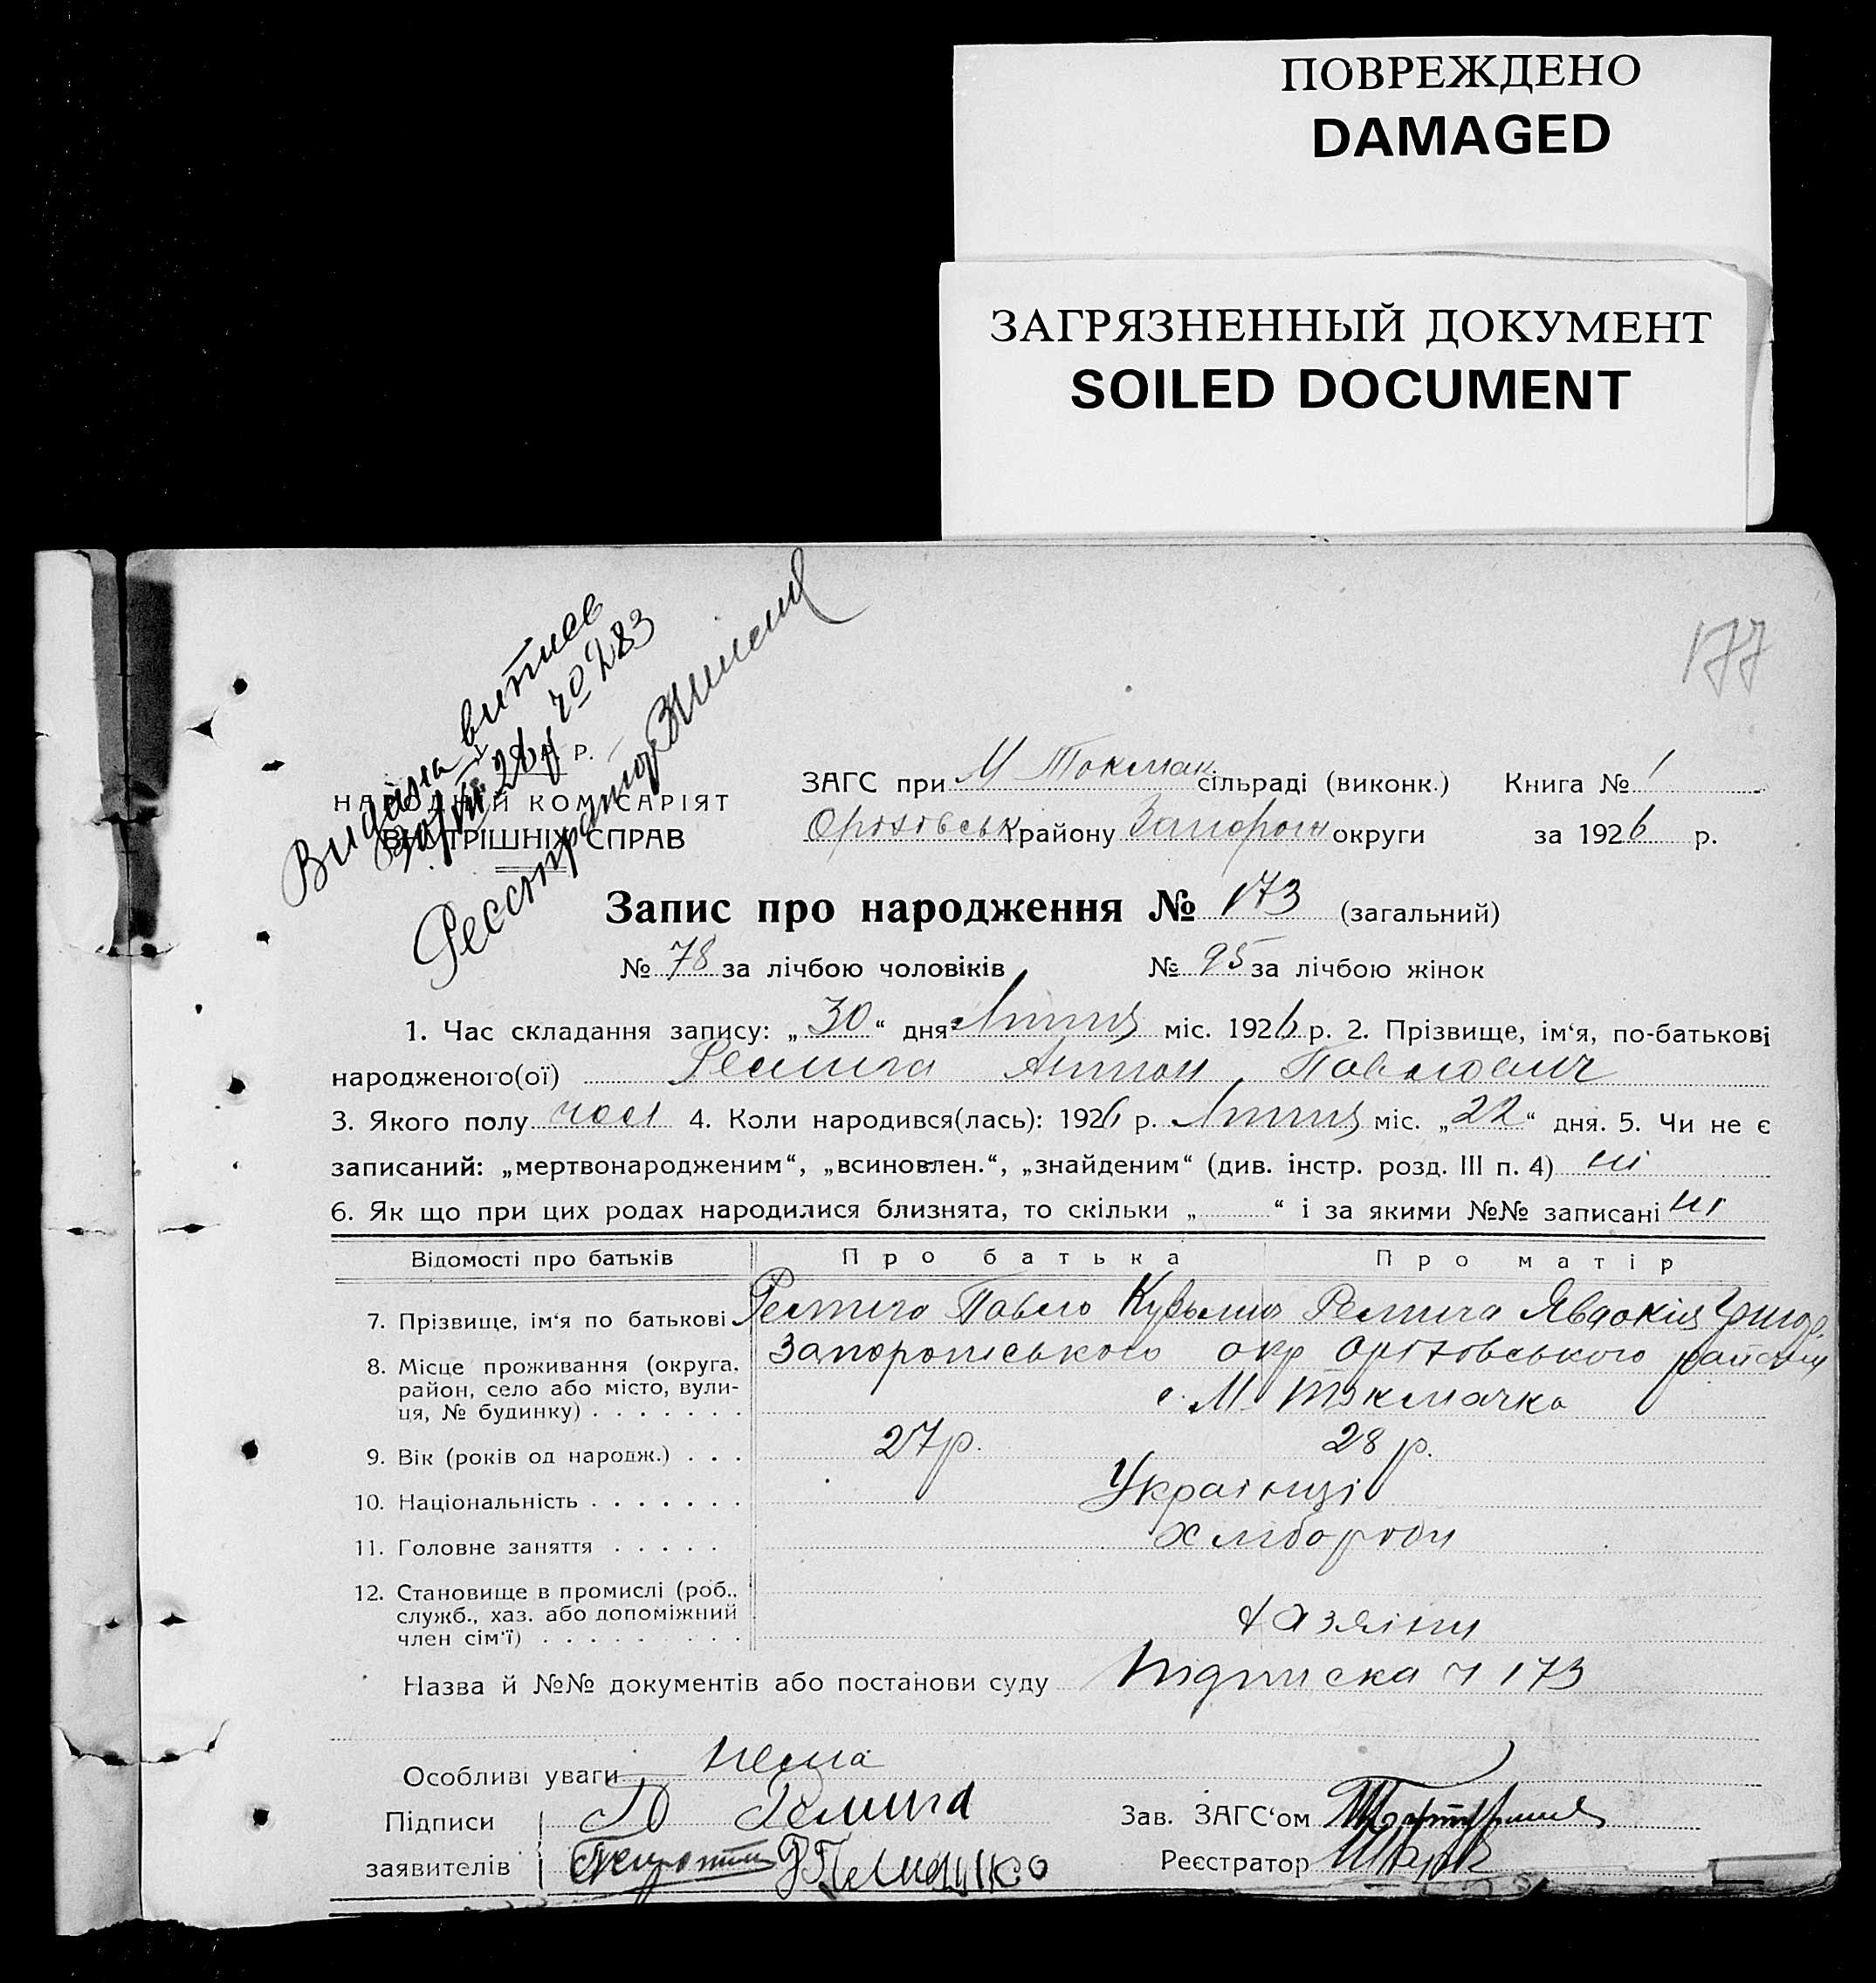 ПОВРЕЖДЕНО
DAMAGED
ЗАГРЯЗНЕННЫЙ ДОКУМЕНТ
SOILED DOCUMENT
177
Видана витяг
Реєстратор
Р.
НАРОДНІЙ КОМІСАРІЯТ
ВНУТРІШНІХ СПРАВ
ЗАГС при М Токмак сільраді (виконк.) Книга № 1
Оріхівськ району Запорож округи за 1926 р.
Запис про народження № 173 (загальний)
№ 78 за лічбою чоловіків № 95 за лічбою жінок
1. Час складання запису: „30“ дня Липня міс. 1926 р. 2. Прізвище, ім'я, по-батькові
народженого(ої) Антон Павлович
3. Якого полу чол 4. Коли народився(лась): 1926 р. Липня міс. „22“ дня. 5. Чи не є
записаний: „мертвонародженим“, „всиновлен.“, „знайденим“ (див. інстр. розд. III п. 4) ні
6. Як що при цих родах народилися близнята, то скільки „ “ і за якими №№ записані ні
Відомості про батьків Про батька Про матір
7. Прізвище, ім'я по батькові Павло Кузьмич Явдокія Григор.
8. Місце проживання (округа. Запорожського окр Оріховського району
район, село або місто, вули-
ця, № будинку) . . . . . . . с. М. Токмачка
9. Вік (років од народж.) . . . 27 р. 28 р.
10. Національність . . . . . . . Українці
11. Головне заняття . . . . . хлібороби
12. Становище в промислі (роб.,
служб., хаз. або допоміжний
член сім'ї) . . . . . . . . . хазяіни
Назва й №№ документів або постанови суду Підписка ч 173
Особливі уваги нема
Підписи
заявителів
Зав. ЗАГС'ом
Реєстратор